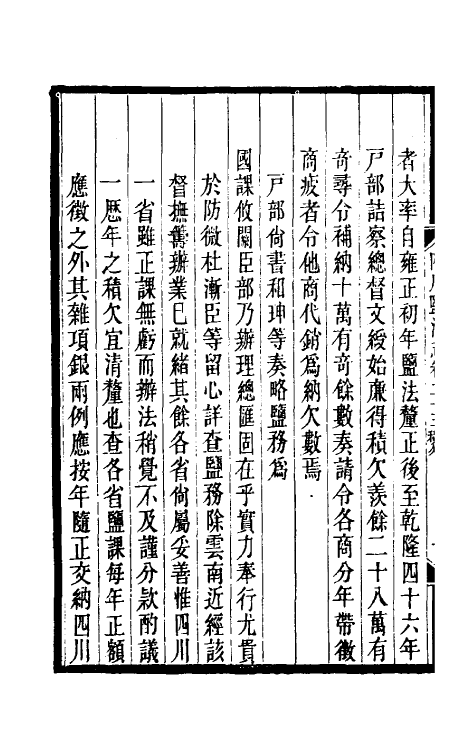 者大率自雍正初年鹽法釐正後至乾隆四十六年
戸部詰察總督文綬始廉得積欠羨餘二十八萬有
奇尋令補納十萬有奇餘數奏請令各商分年帶徵
商疲者令他商代銷爲納欠數焉
戸部尚書和珅等奏略鹽務爲
國課攸關臣部乃辦理總匯固在乎實力奉行尤貴
於防微杜漸臣等留心詳查鹽務除雲南近經該
督撫籌辦業已就緒其餘各省尚屬妥善惟四川
一省雖正課無虧而辦法稍覺不及謹分款酌議
一歷年之積欠宜清釐也查各省鹽課每年正額
應徵之外其雜項銀兩例應按年隨正交納四川